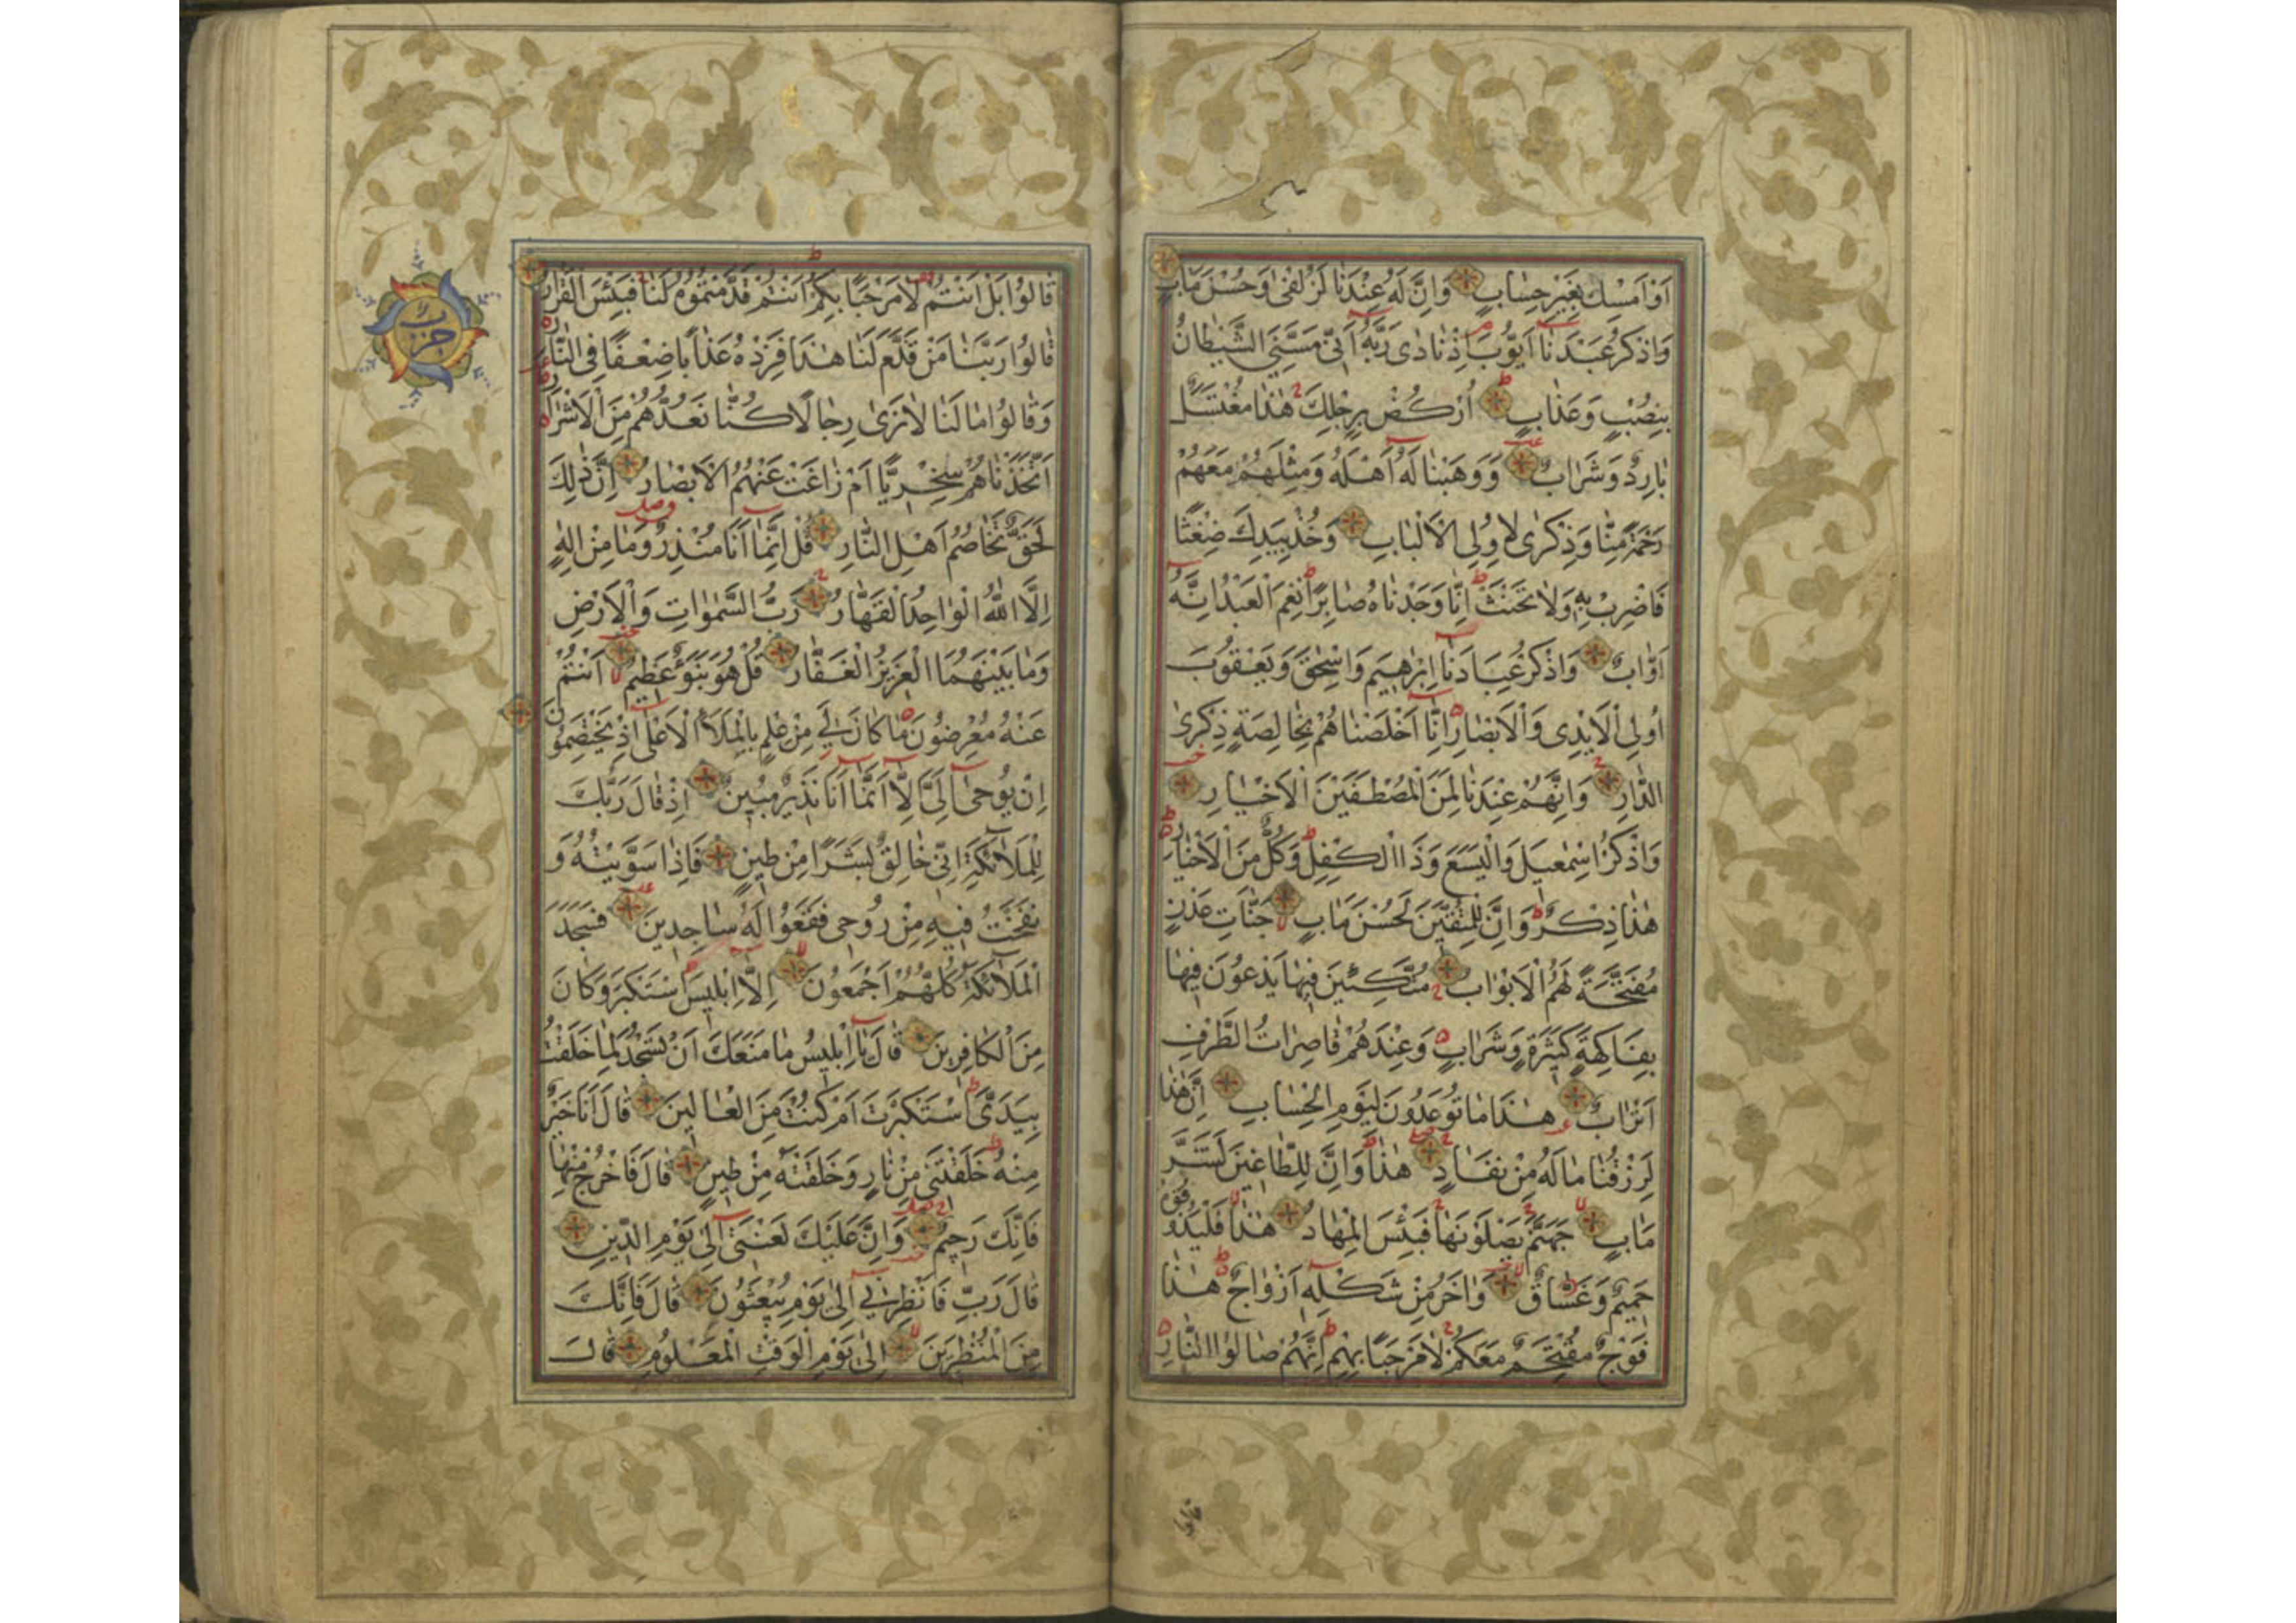 اَوْ اَمْسِكْ بِغَيْرِ حِسَابٍ وَاِنَّ لَهُ عِنْدَنَا لَزُلْفٰى وَحُسْنَ مَاٰبٍ
وَاذْكُرْ عَبْدَنَا اَيُّوبَ اِذْ نَادٰى رَبَّهُ اَنِّي مَسَّنِيَ الشَّيْطَانُ
بِنُصْبٍ وَعَذَابٍ اُرْكُضْ بِرِجْلِكَ هٰذَا مُغْتَسَلٌ
بَارِدٌ وَشَرَابٌ وَوَهَبْنَا لَهُ اَهْلَهُ وَمِثْلَهُمْ مَعَهُمْ
رَحْمَةً مِنَّا وَذِكْرٰى لِاُولِي الْاَلْبَابِ وَخُذْ بِيَدِكَ ضِغْثًا
فَاضْرِبْ بِهِ وَلَا تَحْنَثْ اِنَّا وَجَدْنَاهُ صَابِرًا نِعْمَ الْعَبْدُ اِنَّهُ
اَوَّابٌ وَاذْكُرْ عِبَادَنَا اِبْرٰهِيمَ وَاِسْحٰقَ وَيَعْقُوبَ
اُولِي الْاَيْدِي وَالْاَبْصَارِ اِنَّا اَخْلَصْنَاهُمْ بِخَالِصَةٍ ذِكْرَى
الدَّارِ وَاِنَّهُمْ عِنْدَنَا لَمِنَ الْمُصْطَفَيْنَ الْاَخْيَارِ
وَاذْكُرْ اِسْمٰعِيلَ وَالْيَسَعَ وَذَا الْكِفْلِ وَكُلٌّ مِنَ الْاَخْيَارِ
هٰذَا ذِكْرٌ وَاِنَّ لِلْمُتَّقِينَ لَحُسْنَ مَاٰبٍ جَنَّاتِ عَدْنٍ
مُفَتَّحَةً لَهُمُ الْاَبْوَابُ مُتَّكِئِينَ فِيهَا يَدْعُونَ فِيهَا
بِفَاكِهَةٍ كَثِيرَةٍ وَشَرَابٍ وَعِنْدَهُمْ قَاصِرَاتُ الطَّرْفِ
اَتْرَابٌ هٰذَا مَا تُوعَدُونَ لِيَوْمِ الْحِسَابِ اِنَّ هٰذَا
لَرِزْقُنَا مَا لَهُ مِنْ نَفَادٍ هٰذَا وَاِنَّ لِلطَّاغِينَ لَشَرَّ
مَاٰبٍ جَهَنَّمَ يَصْلَوْنَهَا فَبِئْسَ الْمِهَادُ هٰذَا فَلْيَذُوقُوهُ
حَمِيمٌ وَغَسَّاقٌ وَاٰخَرُ مِنْ شَكْلِهِ اَزْوَاجٌ هٰذَا
فَوْجٌ مُقْتَحِمٌ مَعَكُمْ لَا مَرْحَبًا بِهِمْ اِنَّهُمْ صَالُوا النَّارِ
قالوا
حزب
قَالُوا بَلْ اَنْتُمْ لَا مَرْحَبًا بِكُمْ اَنْتُمْ قَدَّمْتُمُوهُ لَنَا فَبِئْسَ الْقَرَارُ
قَالُوا رَبَّنَا مَنْ قَدَّمَ لَنَا هٰذَا فَزِدْهُ عَذَابًا ضِعْفًا فِي النَّارِ
وَقَالُوا مَا لَنَا لَا نَرٰى رِجَالًا كُنَّا نَعُدُّهُمْ مِنَ الْاَشْرَارِ
اَتَّخَذْنَاهُمْ سِخْرِيًّا اَمْ زَاغَتْ عَنْهُمُ الْاَبْصَارُ اِنَّ ذٰلِكَ
لَحَقٌّ تَخَاصُمُ اَهْلِ النَّارِ قُلْ اِنَّمَا اَنَا مُنْذِرٌ وَمَا مِنْ اِلٰهٍ
اِلَّا اللّٰهُ الْوَاحِدُ الْقَهَّارُ رَبُّ السَّمٰوَاتِ وَالْاَرْضِ
وَمَا بَيْنَهُمَا الْعَزِيزُ الْغَفَّارُ قُلْ هُوَ نَبَؤٌا عَظِيمٌ اَنْتُمْ
عَنْهُ مُعْرِضُونَ مَا كَانَ لِيَ مِنْ عِلْمٍ بِالْمَلَاِ الْاَعْلٰى اِذْ يَخْتَصِمُونَ
اِنْ يُوحٰى اِلَيَّ اِلَّا اَنَّمَا اَنَا نَذِيرٌ مُبِينٌ اِذْ قَالَ رَبُّكَ
لِلْمَلَائِكَةِ اِنِّي خَالِقٌ بَشَرًا مِنْ طِينٍ فَاِذَا سَوَّيْتُهُ وَ
نَفَخْتُ فِيهِ مِنْ رُوحِي فَقَعُوا لَهُ سَاجِدِينَ فَسَجَدَ
الْمَلَائِكَةُ كُلُّهُمْ اَجْمَعُونَ اِلَّا اِبْلِيسَ اسْتَكْبَرَ وَكَانَ
مِنَ الْكَافِرِينَ قَالَ يَا اِبْلِيسُ مَا مَنَعَكَ اَنْ تَسْجُدَ لِمَا خَلَقْتُ
بِيَدَيَّ اَسْتَكْبَرْتَ اَمْ كُنْتَ مِنَ الْعَالِينَ قَالَ اَنَا خَيْرٌ
مِنْهُ خَلَقْتَنِي مِنْ نَارٍ وَخَلَقْتَهُ مِنْ طِينٍ قَالَ فَاخْرُجْ مِنْهَا
فَاِنَّكَ رَجِيمٌ وَاِنَّ عَلَيْكَ لَعْنَتِي اِلٰى يَوْمِ الدِّينِ
قَالَ رَبِّ فَاَنْظِرْنِي اِلٰى يَوْمِ يُبْعَثُونَ قَالَ فَاِنَّكَ
مِنَ الْمُنْظَرِينَ اِلٰى يَوْمِ الْوَقْتِ الْمَعْلُومِ قَالَ